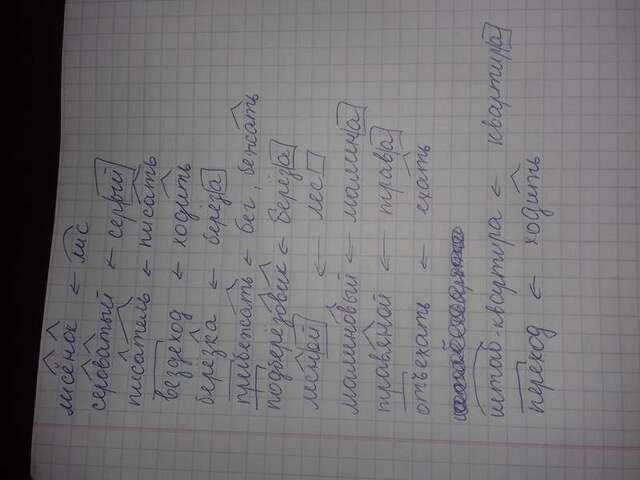 лисёнок ← лис
сероватый ← серый
писатель ← писать
вездеход ← ходить
берёзка ← берёза
прибежать ← бег, бежать
подберёзовик ← берёза
лесной ← лес
малиновый ← малина
травяной ← трава
отъехать ← ехать
штаб-квартира ← квартира
переход ← ходить